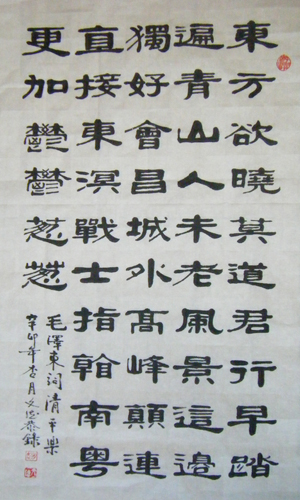 東方欲曉莫道君行早踏
遍青山人未老風景這邊
獨好會昌城外高峰顛連
直接東溟戰士指看南粵
更加鬱鬱葱葱
毛澤東詞清平樂
辛卯年杏月文德恭錄